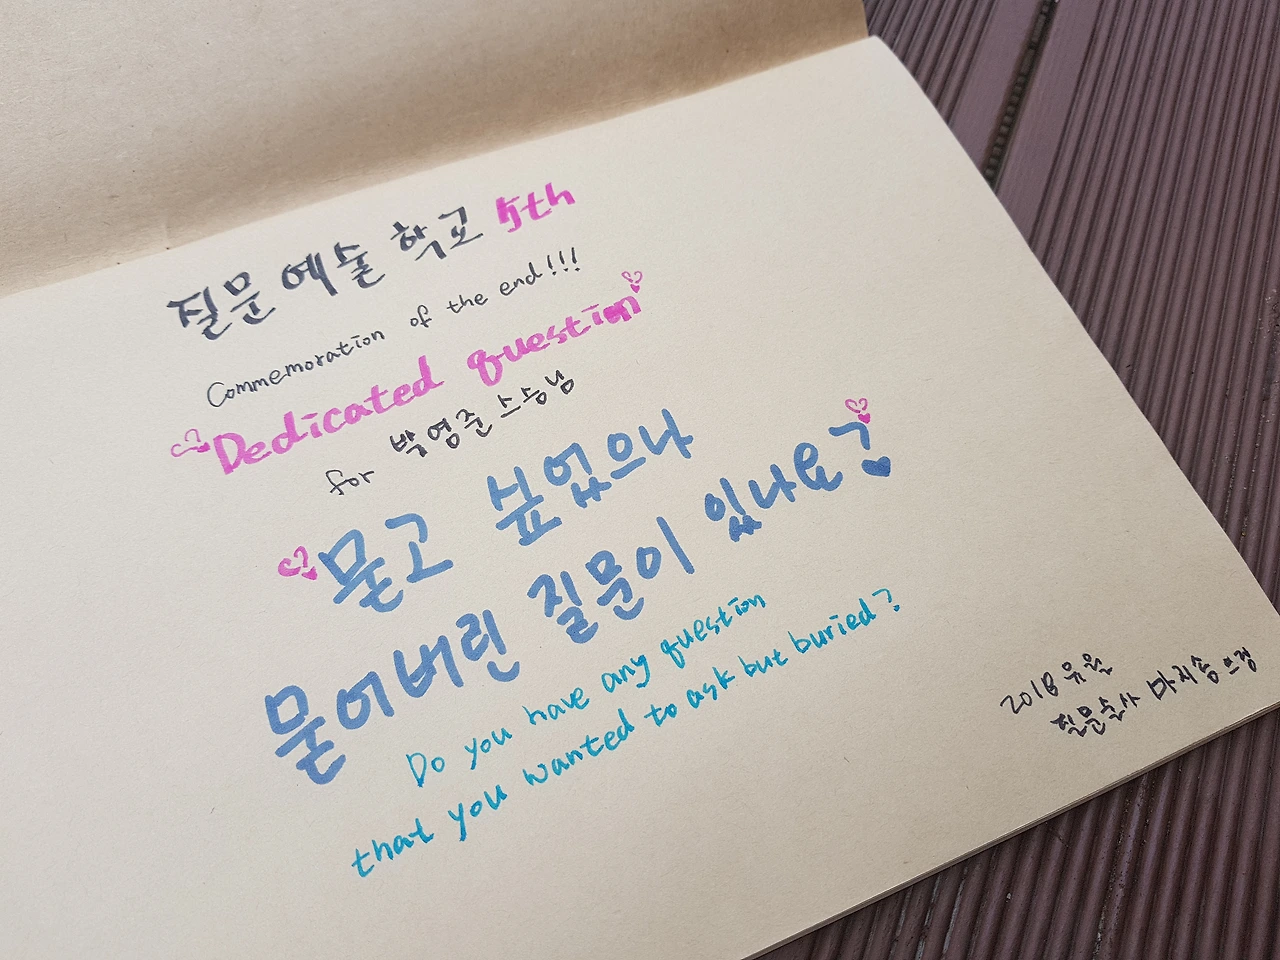 질문 예술 학교 5th
Commemoration of the end!!!
Dedicated question
for 박영준 스승님
묻고 싶었으나
묻어버린 질문이 있나요?
Do you have any question
that you wanted to ask but buried?
2018 유월
질문술사 마지송 드림